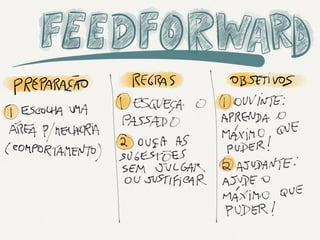 FEEDFORWARD
PREPARAÇÃO
1 ESCOLHA UMA
ÁREA P/ MELHORIA
(COMPORTAMENTO)
REGRAS
1 ESQUEÇA O
PASSADO
2 OUÇA AS
SUGESTÕES
SEM JULGAR
OU JUSTIFICAR
OBJETIVOS
1 OUVINTE:
APRENDA O
MÁXIMO QUE
PUDER!
2 AJUDANTE:
AJUDE O
MÁXIMO QUE
PUDER!